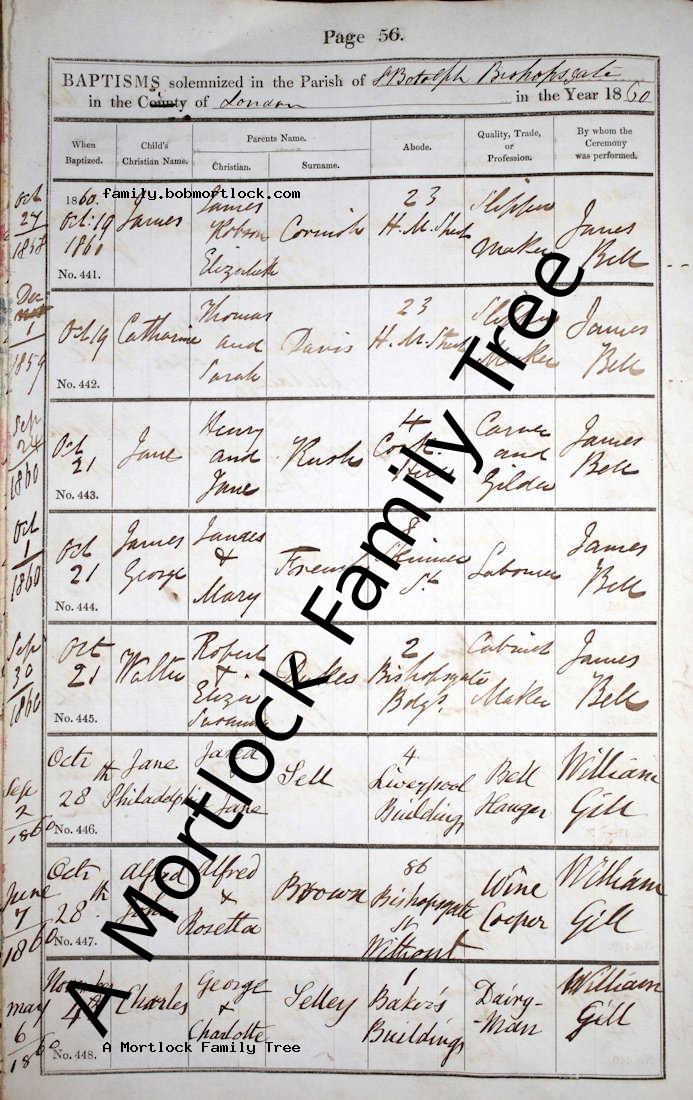 Page 56.
BAPTISMS solemnized in the Parish of St Botolph Bishopsgate
in the County of London in the Year 1860
When Baptized. Child's Christian Name. Parents Name. Christian. Surname. Abode. Quality, Trade, or Profession. By whom the Ceremony was performed.
family.bobmortlock.com
Oct
27
1858
1860.
Oct 19
1860
No. 441.
James
James
Robson
Elizabeth
Cornish
23
H. M. Street
Slipper
Maker
James
Bell
Dec
1
1859
Oct 19
No. 442.
Catharine
Thomas
and
Sarah
Davis
23
H. M. Street
Slipper
Maker
James
Bell
Sep
24
1860
Oct
21
No. 443.
Jane
Henry
and
Jane
Rush
4
Carver
and
Gilder
James
Bell
Oct
1
1860
Oct
21
No. 444.
James
George
James
&
Mary
8
Skinner
St
Labourer
James
Bell
Sep
30
1860
Oct
21
No. 445.
Walter
Robert
&
Eliza
Susanna
2
Bishopsgate
Bdgs.
Cabinet
Maker
James
Bell
Sep
2
1860
Octr
28th
No. 446.
Jane
Philadelphia
Jared
&
Jane
Sell
4
Liverpool
Buildings
Bell
Hanger
William
Gill
June
7
1860
Octr
28th
No. 447.
Alfred
John
Alfred
&
Rosetta
Brown
86
Bishopsgate
St
Without
Wine
Cooper
William
Gill
May
6
1860
November
4
No. 448.
Charles
George
&
Charlotte
Selley
1
Baker's
Buildings
Dairy-
Man
William
Gill
A Mortlock Family Tree
A Mortlock Family Tree